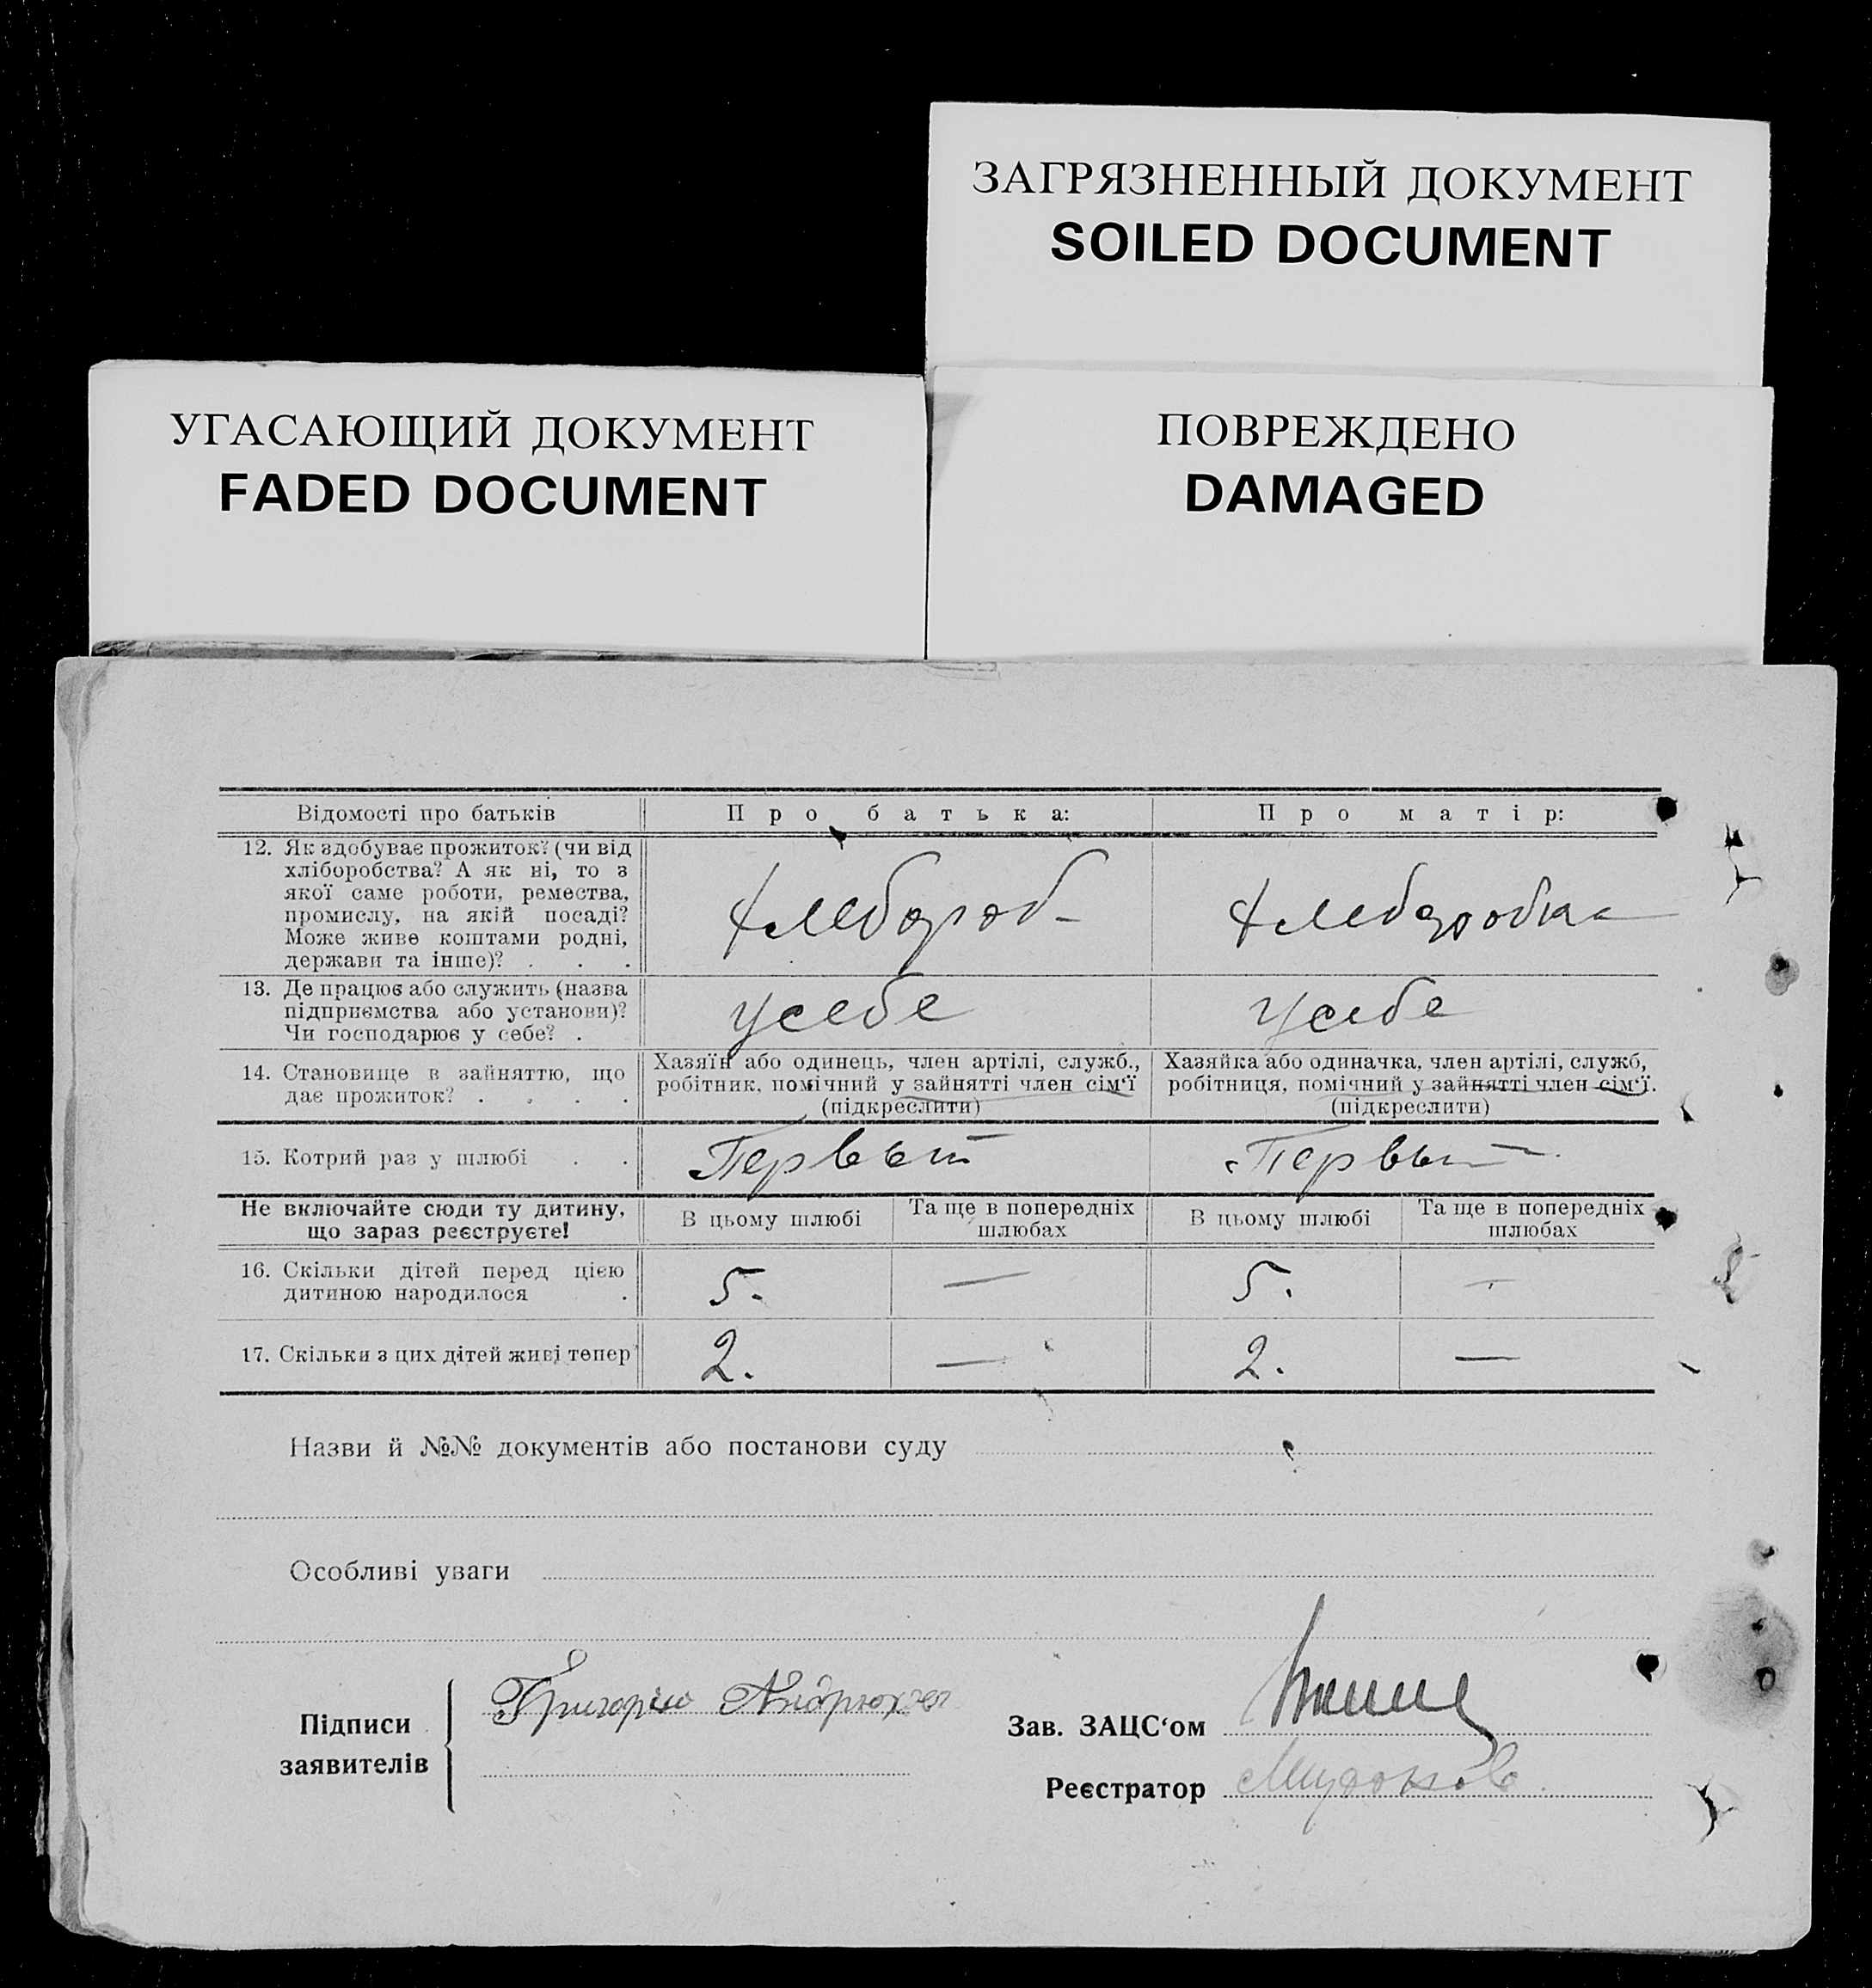 ЗАГРЯЗНЕННЫЙ ДОКУМЕНТ
SOILED DOCUMENT
УГАСАЮЩИЙ ДОКУМЕНТ
FADED DOCUMENT
ПОВРЕЖДЕНО
DAMAGED
Відомості про батьків
Про батька:
Про матір:
12. Як здобуває прожиток? (чи від
хліборобства? А як ні, то з
якої саме роботи, ремества,
промислу, на якій посаді?
Може живе коштами родні,
держави та інше)? . . .
Хлебороб
Хлеборобка
13. Де працює або служить (назва
підприємства або установи)?
Чи господарює у себе? .
У себе
У себе
14. Становище в зайняттю, що
дає прожиток? . . . .
Хазяїн або одинець, член артілі, служб.,
робітник, помічний у зайнятті член сім‘ї
(підкреслити)
Хазяйка або одиначка, член артілі, служб,
робітниця, помічний у зайнятті член сім‘ї.
(підкреслити)
15. Котрий раз у шлюбі . .
Первый
Первый
Не включайте сюди ту дитину,
що зараз реєструєте!
В цьому шлюбі
Та ще в попередніх
шлюбах
В цьому шлюбі
Та ще в попередніх
шлюбах
16. Скільки дітей перед цією
дитиною народилося .
5. — 5. -
17. Скільки з цих дітей живі тепер
2. — 2. —
Назви й №№ документів або постанови суду
Особливі уваги
Підписи
заявителів
Григорий
Зав. ЗАЦС‘ом
Реєстратор